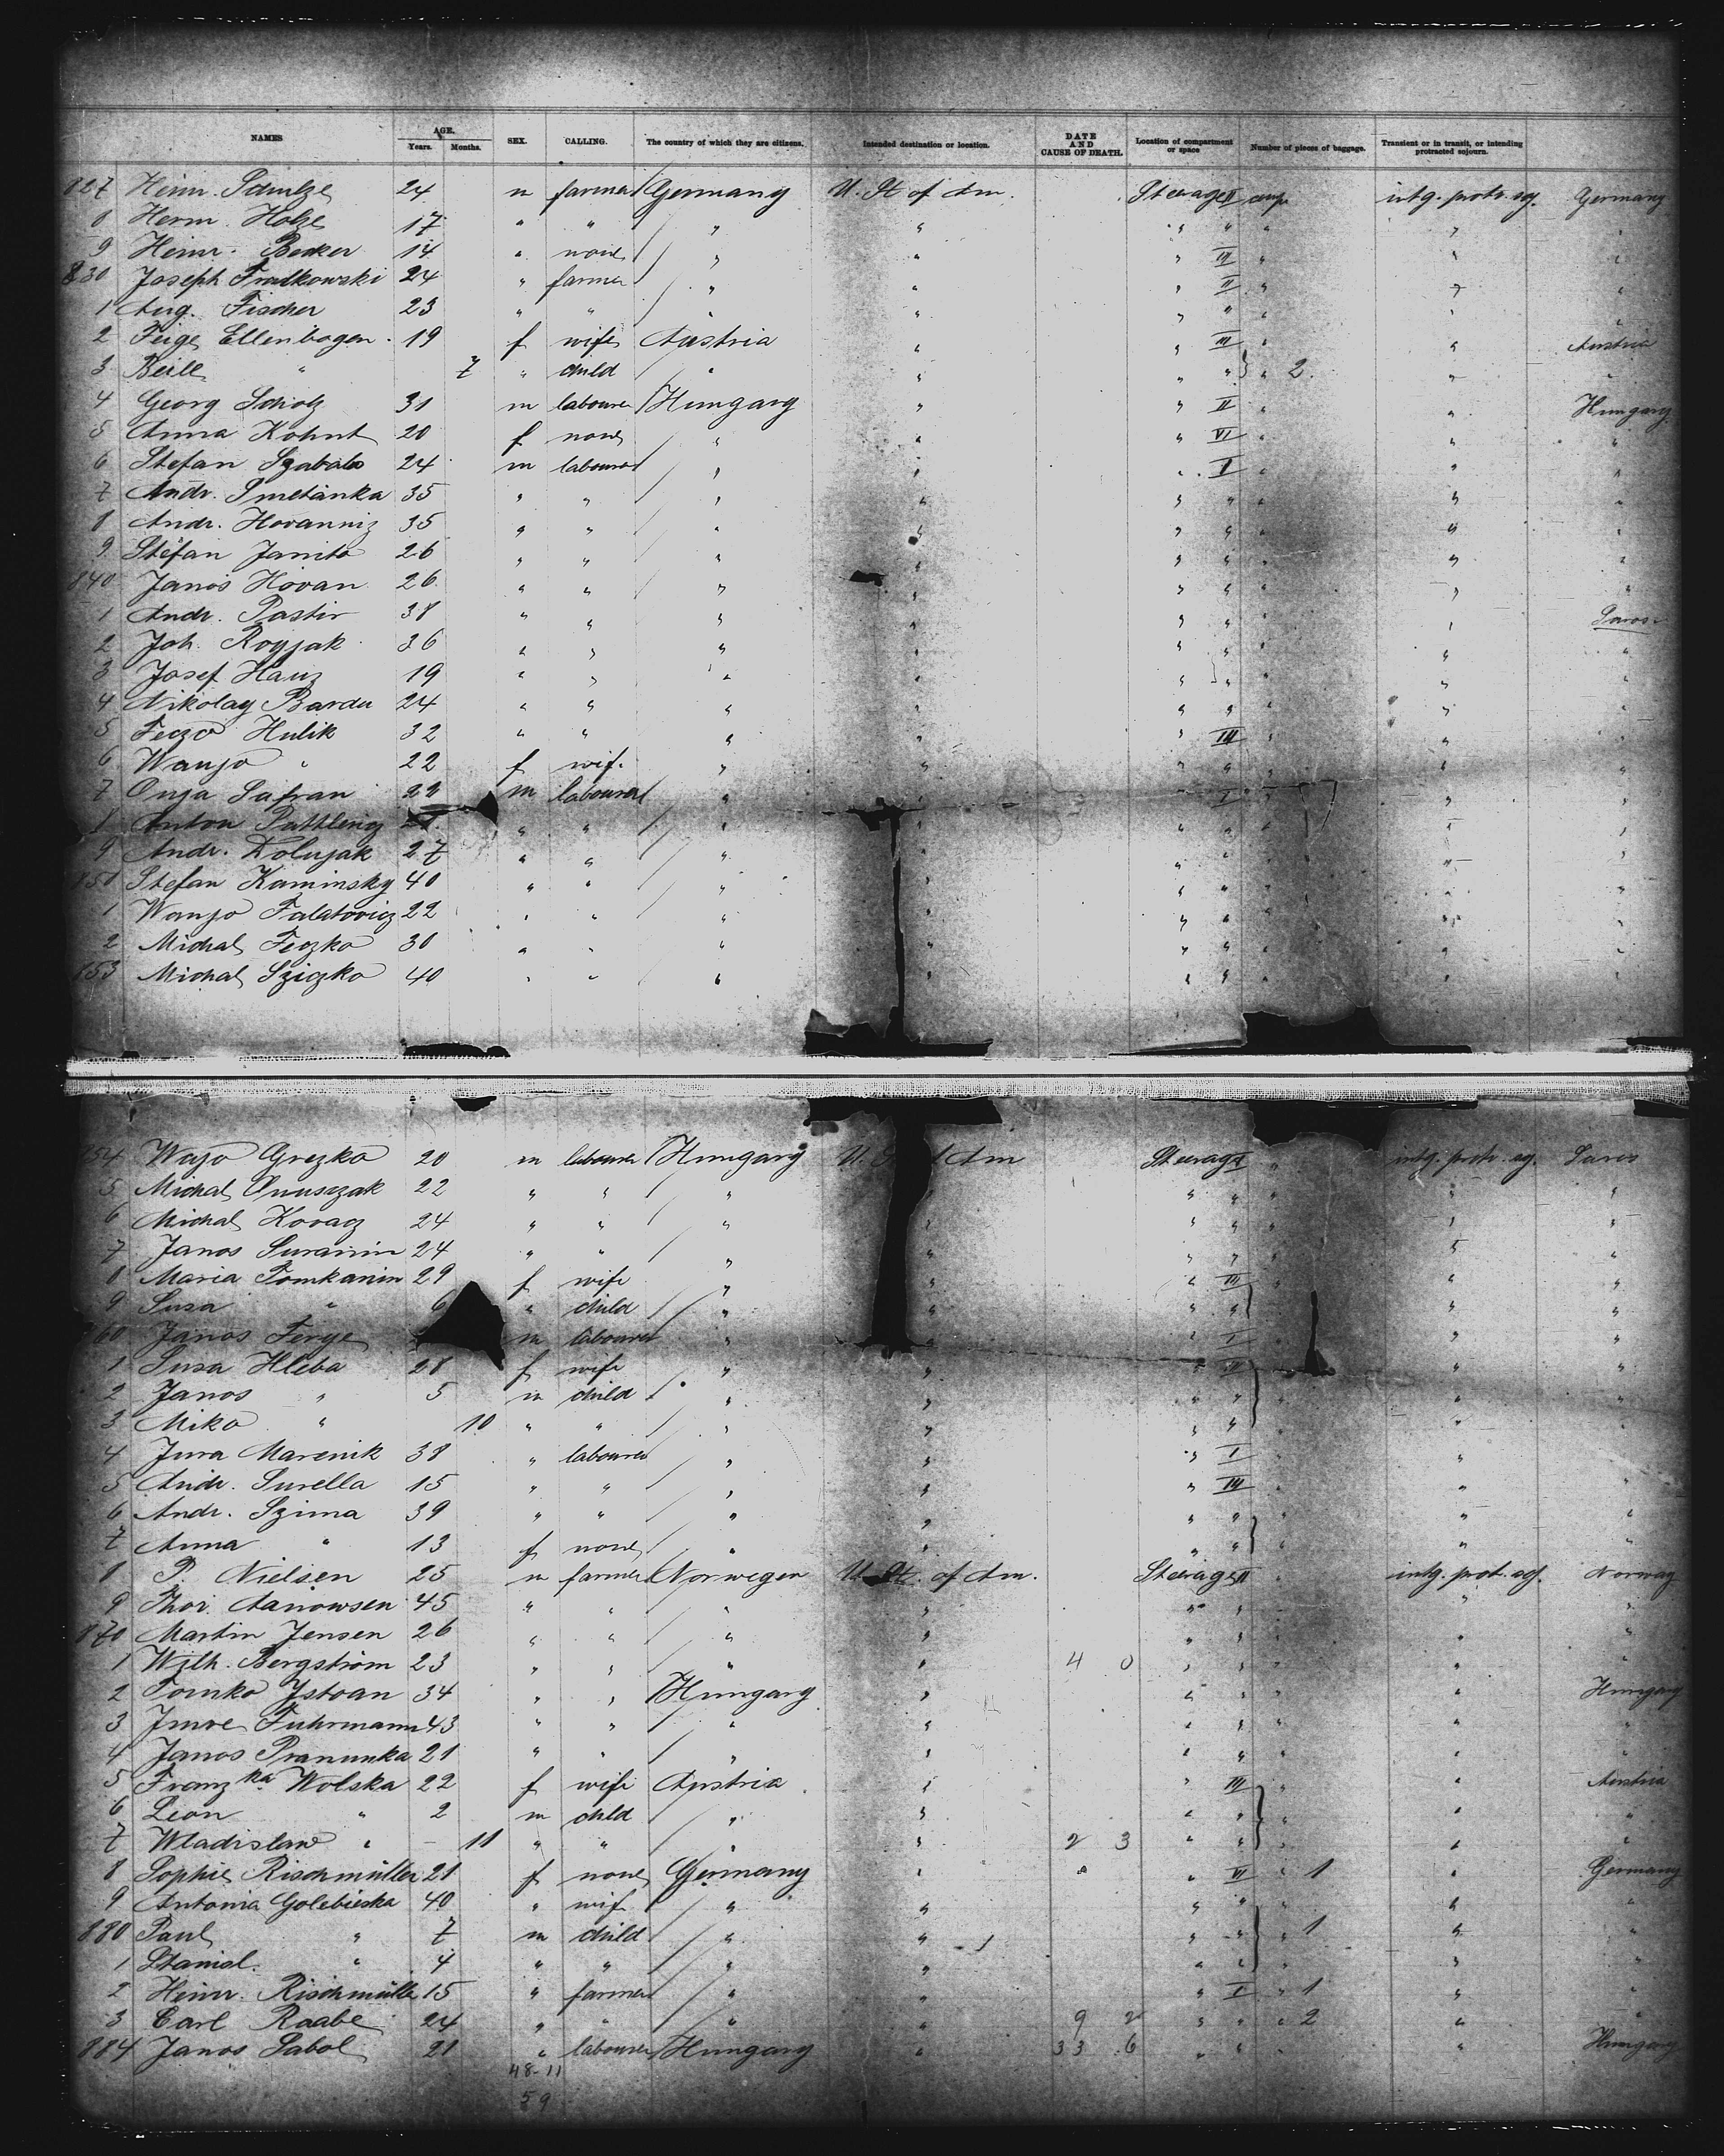 NAMES AGE. Years. Months. SEX. CALLING. The country of which they are citizens. Intended destination or location. DATE AND CAUSE OF DEATH. Location of compartment or space Number of pieces of baggage. Transient or in transit, or intending protracted sojourn.
827 Heinr. Schultze 24 m farmer Germany U. St of Am. Steerage II intg. protr. soj. Germany
8 Herm. Holze 17 " " " " " " " "
9 Heinr. Becker 14 " none " " " III " " "
830 Joseph Fradkowski 24 " farmer " " " II " " "
1 Aug. Fischer 23 " " " " " " " " "
2 Feige Ellenbogen 19 f wife Austria " " III " " Austria
3 Beile " 7 " child " " " " " 2 " "
4 Georg Scholz 31 m labourer Hungary " " II " " Hungary
5 Anna Kohnt 20 f none " " " VI " " "
6 Stefan Szababo 24 m labourer " " " I " " "
7 Andr. Smetanka 35 " " " " " " " " "
8 Andr. Hovanniz 35 " " " " " " " " "
9 Stefan Janito 26 " " " " " " " " "
840 Janos Hovan 26 " " " " " " " "
1 Andr. Pastir 38 " " " " " " " Saros
2 Joh. Rogjak 36 " " " " " " " " "
3 Josef Hauz 19 " " " " " " " " "
4 Nikolay Bardu 24 " " " " " " " " "
5 Feczo Hulik 32 " " " " " III " " "
6 Wanjo " 22 f wife " " " " " " "
7 Onja Safran 22 m labourer " " I " " "
8 Anton Puttleng " " " " " " " " "
9 Andr. Dolujak 27 " " " " " " " " "
850 Stefan Kaminsky 40 " " " " " " " " "
1 Wanjo Falatovicz 22 " " " " " " " " "
2 Michal Feczko 30 " " " " " " " " "
853 Michal Sziczko 40 " " " " " " " " "
854 Wajo Grezko 20 m labourer Hungary U. Am Steerage I " intg. protr. soj. Saros
5 Michal Onusczak 22 " " " " " " " "
6 Michal Kovacz 24 " " " " " " " " "
7 Janos Suranin 24 " " " " " " " "
8 Maria Tomkanin 29 f wife " " " III " " "
9 Susa " 6 " child " " " " " " "
860 Janos Ferge m labourer " " I " " "
1 Susa Hleba 28 f wife " " " III " " "
2 Janos " 5 m child " " " " " " "
3 Miko " 10 " " " " " " " " "
4 Jura Marenik 38 " labourer " " " I " " "
5 Andr. Surella 15 " " " " " III " " "
6 Andr. Szima 39 " " " " " " " " "
7 Anna " 13 f none " " " " " " "
8 P. Nielsen 25 m farmer Norwegen U. St. of Am. Steerage II " intg. prot. soj. Norway
9 Thor. Aanowsen 45 " " " " " " " " "
870 Martin Jensen 26 " " " " " " " " "
1 Wilh. Bergström 23 " " " " 4 0 " " " " "
2 Tomko Istvan 34 " " Hungary " " " " " Hungary
3 Imre Fuhrmann 43 " " " " " " " " "
4 Janos Pranunka 21 " " " " " " " " "
5 Franzka Wolska 22 f wife Austria " " III " " Austria
6 Leon " 2 m child " " " " " " "
7 Wladislaw " – 11 " " " " 2 3 " " " " "
8 Sophie Rischmüller 21 f none Germany " " III " 1 " Germany
9 Antonia Golebieska 40 " wife " " " " " " "
880 Paul " 7 m child " " " " " 1 " "
1 Stanisl. " 4 " " " " " " " "
2 Heinr. Rischmüller 15 " farmer " " " I " 1 " "
3 Carl Raabe 24 " " " " 9 2 " " " 2 " "
884 Janos Sabol 21 " labourer Hungary " 33 6 " " " " Hungary
48-11
59